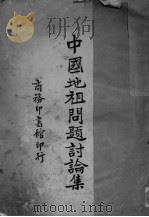 中國地租問題討論集
商務印書館印行